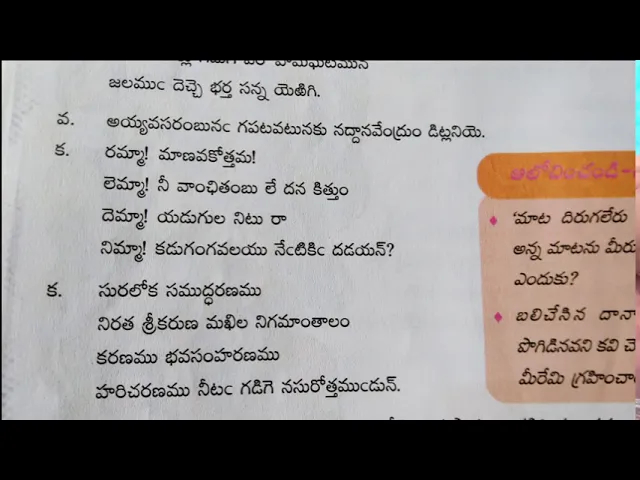 జలముఁ దెచ్చె భర్త సన్న యెఱిగి.
వ. అయ్యవసరంబునఁ గపటవటునకు నద్దానవేంద్రుం డిట్లనియె.
క. రమ్మా! మాణవకోత్తమ!
లెమ్మా! నీ వాంఛితంబు లే దన కిత్తుం
దెమ్మా! యడుగుల నిటు రా
నిమ్మా! కడుగంగవలయు నేఁటికిఁ దడయన్?
క. సురలోక సముద్ధరణము
నిరత శ్రీకరుణ మఖిల నిగమాంతాలం
కరణము భవసంహరణము
హరిచరణము నీటఁ గడిగె నసురోత్తముఁడున్.
ఆలోచించండి-
♦ 'మాట దిరుగలేరు
అన్న మాటను మీరు
ఎందుకు?
♦ బలిచేసిన దానా
పొగిడినవని కవి చె
మీరేమి గ్రహించా